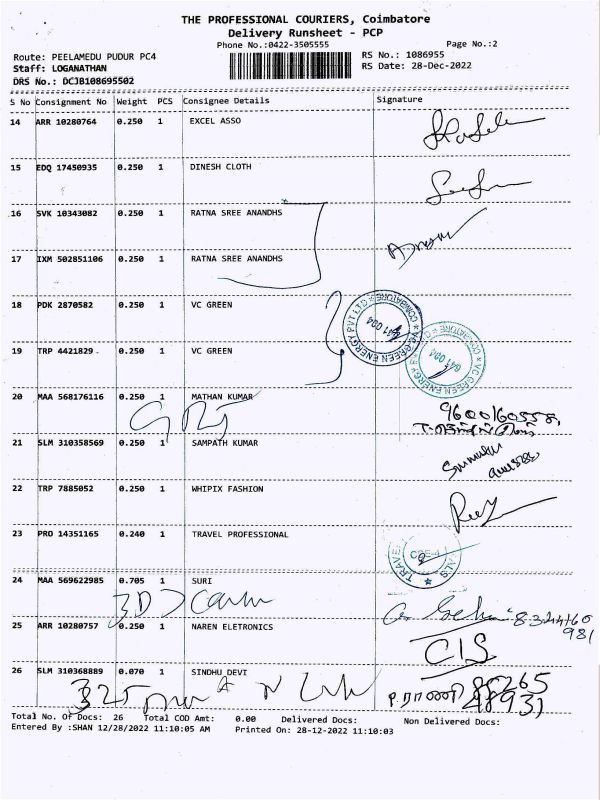 THE PROFESSIONAL COURIERS, Coimbatore
Delivery Runsheet - PCP
Phone No.:0422-3505555
Page No.:2
Route: PEELAMEDU PUDUR PC4
RS No.: 1086955
Staff: LOGANATHAN
RS Date: 28-Dec-2022
DRS No.: DCJB108695502
S No Consignment No Weight PCS Consignee Details Signature
14 ARR 10280764 0.250 1 EXCEL ASSO
15 EDQ 17450935 0.250 1 DINESH CLOTH
16 SVK 10343082 0.250 1 RATNA SREE ANANDHS
17 IXM 502851106 0.250 1 RATNA SREE ANANDHS
18 PDK 2870582 0.250 1 VC GREEN
VC GREEN ENERGY PVT LTD * COIMBATORE * 641 004
19 TRP 4421829 0.250 1 VC GREEN
VC GREEN ENERGY COIMBATORE 641 004
20 MAA 568176116 0.250 1 MATHAN KUMAR
21 SLM 310358569 0.250 1 SAMPATH KUMAR
22 TRP 7885052 0.250 1 WHIPIX FASHION
23 PRO 14351165 0.240 1 TRAVEL PROFESSIONAL
24 MAA 569622985 0.705 1 SURI
25 ARR 10280757 0.250 1 NAREN ELETRONICS
CIS
26 SLM 310368889 0.070 1 SINDHU DEVI
325
ப.ராணி 88265
48931
Total No. Of Docs: 26 Total COD Amt: 0.00 Delivered Docs: Non Delivered Docs:
Entered By :SHAN 12/28/2022 11:10:05 AM Printed On: 28-12-2022 11:10:03